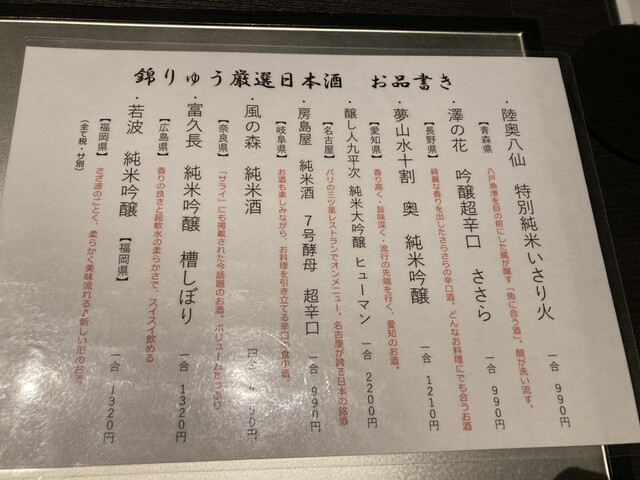 錦りゅう厳選日本酒 お品書き
・陸奥八仙 特別純米いさり火 一合 990円
【青森県】 八戸漁港を目の前にした蔵が醸す「魚に合う酒」。酸が洗い流す。
・澤の花 吟醸超辛口 ささら 一合 990円
【長野県】 綺麗な香りを出したさらさらの辛口酒。どんなお料理にでも合うお酒
・夢山水十割 奥 純米吟醸 一合 1210円
【愛知県】 香り高く・旨味深く・流行の先端を行く、愛知のお酒。
・醸し人九平次 純米大吟醸 ヒューマン 一合 2200円
【名古屋】 パリの三ツ星レストランでオンメニュー。名古屋が誇る日本の銘酒
・房島屋 純米酒 7号酵母 超辛口 一合 990円
【岐阜県】 お酒も楽しみながら、お料理を引き立てる辛口の食中酒。
・風の森 純米酒 990円
【奈良県】 「サライ」にも掲載された今話題のお酒。ボリュームたっぷり、
・富久長 純米吟醸 槽しぼり 一合 1320円
【広島県】 香りの良さと超軟水の柔らかさで、スイスイ飲める
・若波 純米吟醸 【福岡県】 一合 1320円
【福岡県】 さざ波のごとく、柔らかく美味流れる♪新しい形のお酒
(全て税・サ別)